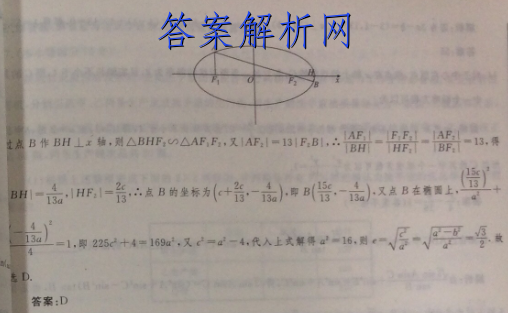 答案解析网
F₁ O F₂ H B x
点 B 作 BH⊥x 轴,则△BHF₂∽△AF₁F₂,又|AF₂|=13|F₂B|,∴|AF₁|/|BH|=|F₁F₂|/|HF₂|=|AF₂|/|BF₂|=13,得
|BH|=4/13a,|HF₂|=2c/13,∴点 B 的坐标为(c+2c/13,-4/13a),即 B(15c/13,-4/13a),又点 B 在椭圆上,(15c/13)²/a²+
(-4/13a)²/4=1,即 225c²+4=169a²,又 c²=a²-4,代入上式解得 a²=16,则 e=√(c²/a²)=√((a²-b²)/a²)=√3/2.故
选 D.
答案:D